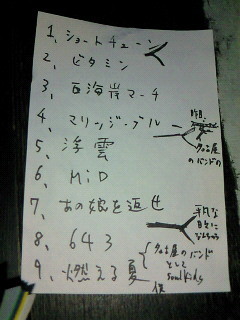 1、ショートチューン
2、ビタミン
3、西海岸マーチ
4、マリッジ・ブルー
名古屋
のバンドの
5、浮雲
6、MiD
7、あの娘を返せ
平凡な
日々に
8、643
9、燃える夏
名古屋のバンド
として